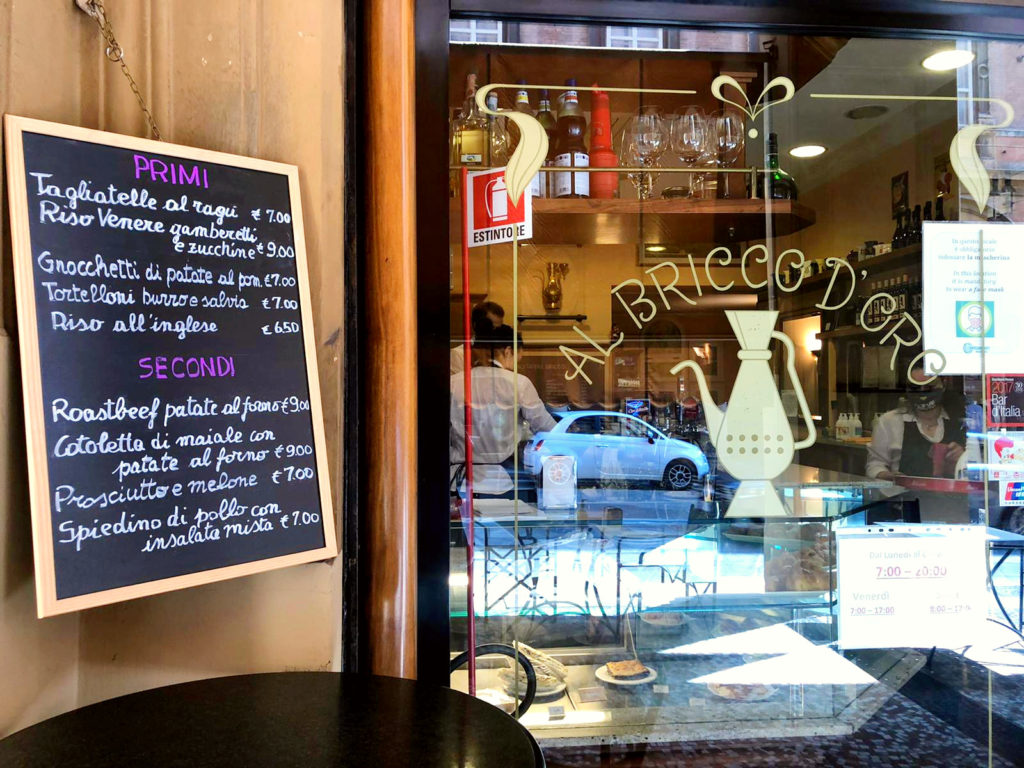 PRIMI
Tagliatelle al ragù € 7.00
Riso Venere gamberetti
e zucchine € 9.00
Gnocchetti di patate al pom. € 7.00
Tortelloni burro e salvia € 7.00
Riso all'inglese € 6.50
SECONDI
Roastbeef patate al forno € 9.00
Cotoletta di maiale con
patate al forno € 9.00
Prosciutto e melone € 7.00
Spiedino di pollo con
insalata mista € 7.00
ESTINTORE
AL BRICCO D'ORO
In questo locale
è obbligatorio
indossare la mascherina
In this location
it is mandatory
to wear a face mask
2017
Bar
d'Italia
Dal Lunedì al
7:00 – 20:00
Venerdì
7:00 – 17:00
8:00 –